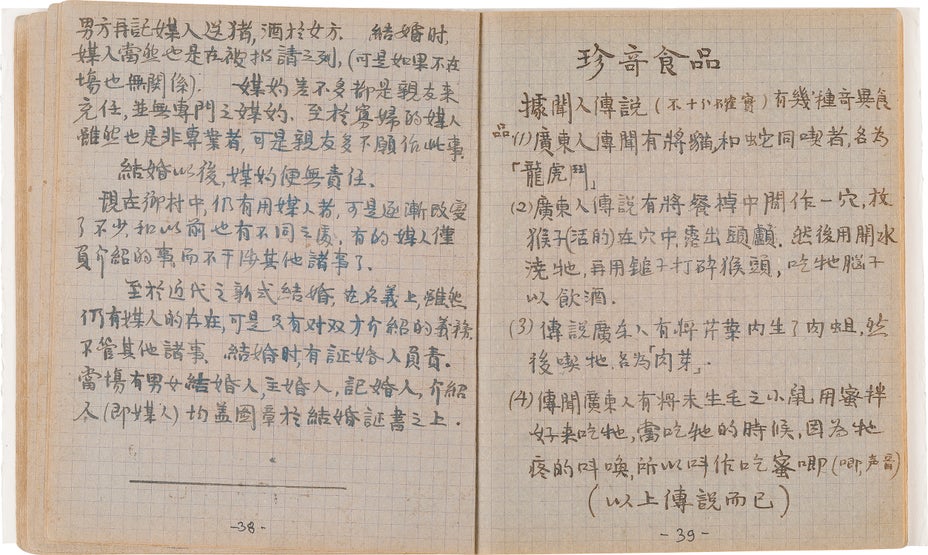 男方再託媒人送猪,酒於女方. 結婚时,
媒人當然也是在被招請之列,(可是如果不在
場也無關係). 媒妁差不多都是親友来
充任,並無專門之媒妁. 至於寡婦的媒人
雖然也是非專業者,可是親友多不願作此事.
結婚以後,媒妁便無責任.
現在鄉村中,仍有用媒人者,可是逐漸改变
了不少和以前也有不同之處,有的媒人僅
負介紹的事而不干涉其他諸事了.
至於近代之新式結婚,在名義上,雖然
仍有媒人的存在,可是只有对双方介紹的義務.
不管其他諸事. 結婚时,有証婚人員責.
當場有男女結婚人,主婚人,記婚人,介紹
人(即媒人)均盖図章於結婚証書之上.
-38-
珍奇食品
據聞人傳說(不十分確實)有幾種奇異食
品(1)廣東人傳聞有將貓,和蛇同喫者,名为
「龍虎鬥」
(2)廣東人傳説有將餐棹中開作一穴,放
猴子(活的)在穴中,露出頭顱. 然後用開水
澆牠,再用錘子打碎猴頭,吃牠脳子
以飲酒.
(3)傳說廣东人有将芹菜内生了肉蛆,然
後喫牠.名為「肉芽」.
(4)傳聞廣東人有将未生毛之小鼠用蜜拌
好来吃牠,當吃牠的時候,因為牠
疼的呌喚,所以呌作吃蜜唧(唧,声音)
(以上傳說而已)
-39-